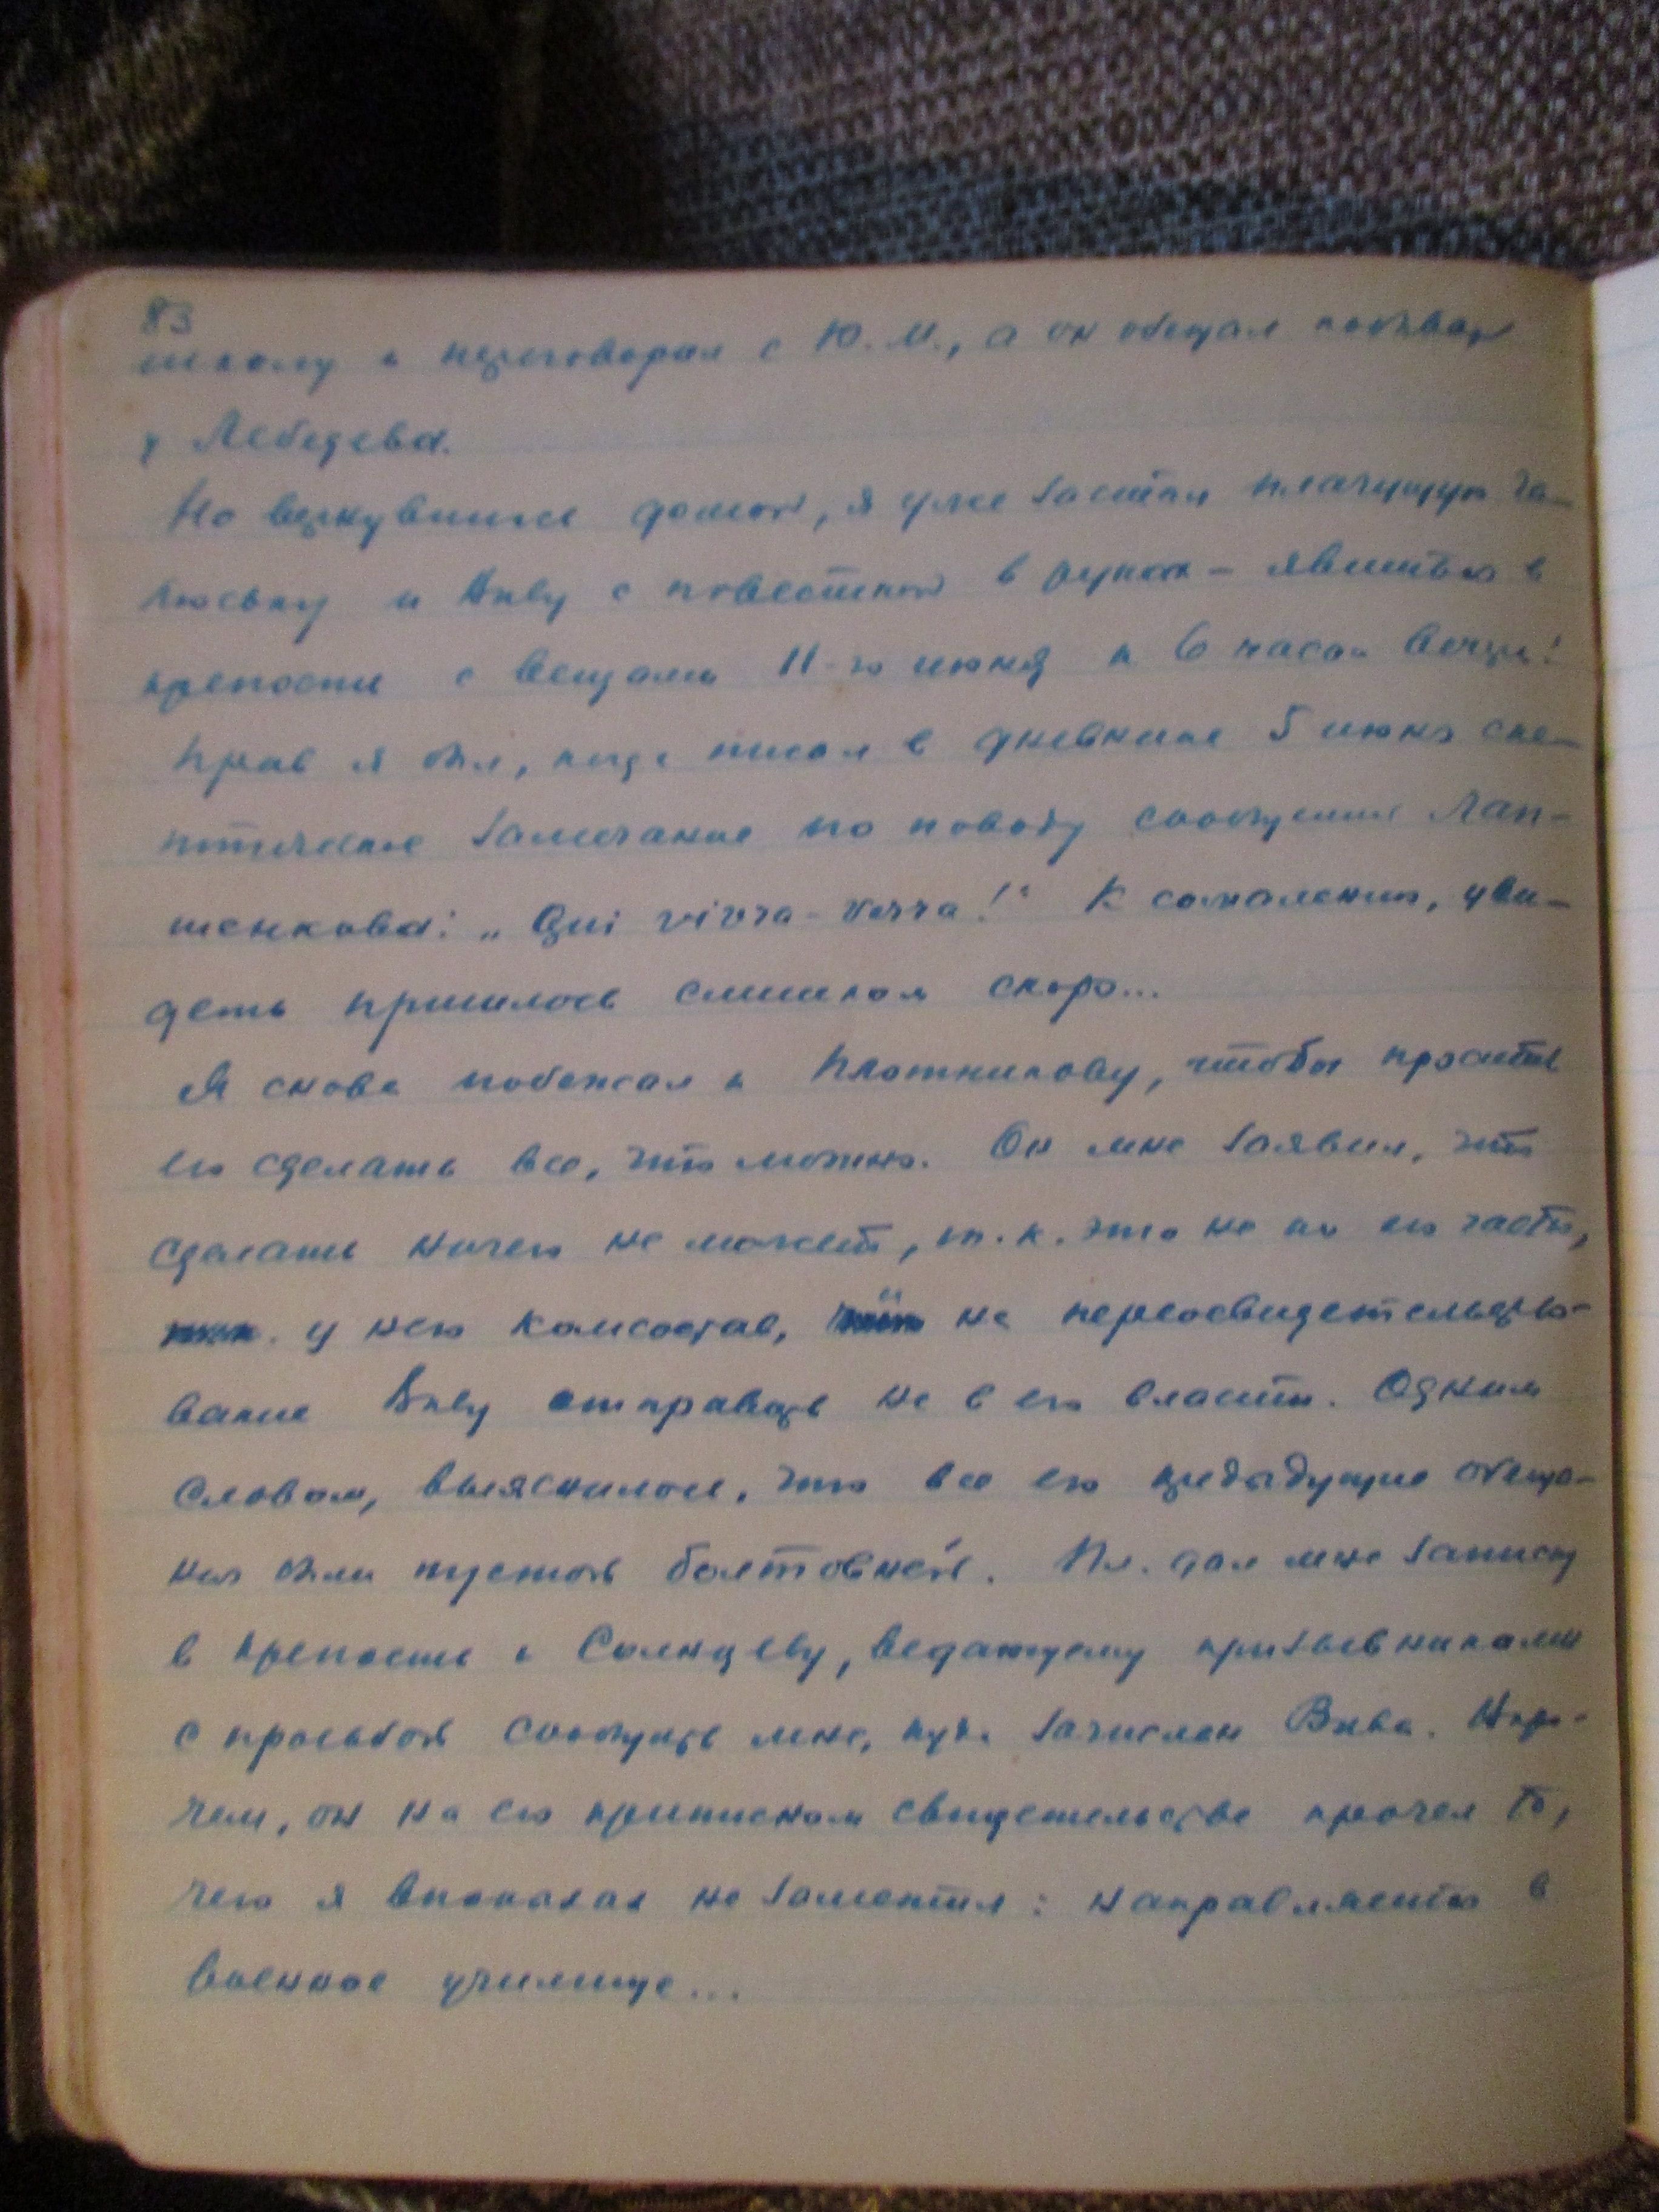 83
школу и переговорил с Ю. М., а он обещал побывать
у Лебедева.
Но вернувшись домой, я уже застал плачущую Га-
люську и Вкву с повесткой в руках - явиться в
крепости с вещами 11-го июня к 6 часам вечера!
Прав я был, когда писал в дневнике 5 июня ске-
птическое замечание по поводу сообщения Лап-
шенкова: „Qui vivra - verra!“ К сожалению, уви-
деть пришлось слишком скоро...
Я снова побежал к Плотникову, чтобы просить
его сделать все, что можно. Он мне заявил, что
сделать ничего не может, т. к. это не по его части,
у него комсостав, на переосвидетельство-
вание Вкву отправить не в его власти. Одним
словом, выяснилось, что все его предыдущие обеща-
ния были пустой болтовней. Пл. дал мне записку
в крепость к Солнцеву, ведающему призывниками
с просьбой сообщить мне, куда зачислен Вква. Впро-
чем, он на его приписном свидетельстве прочел то,
чего я впопыхах не заметил: направляется в
военное училище...